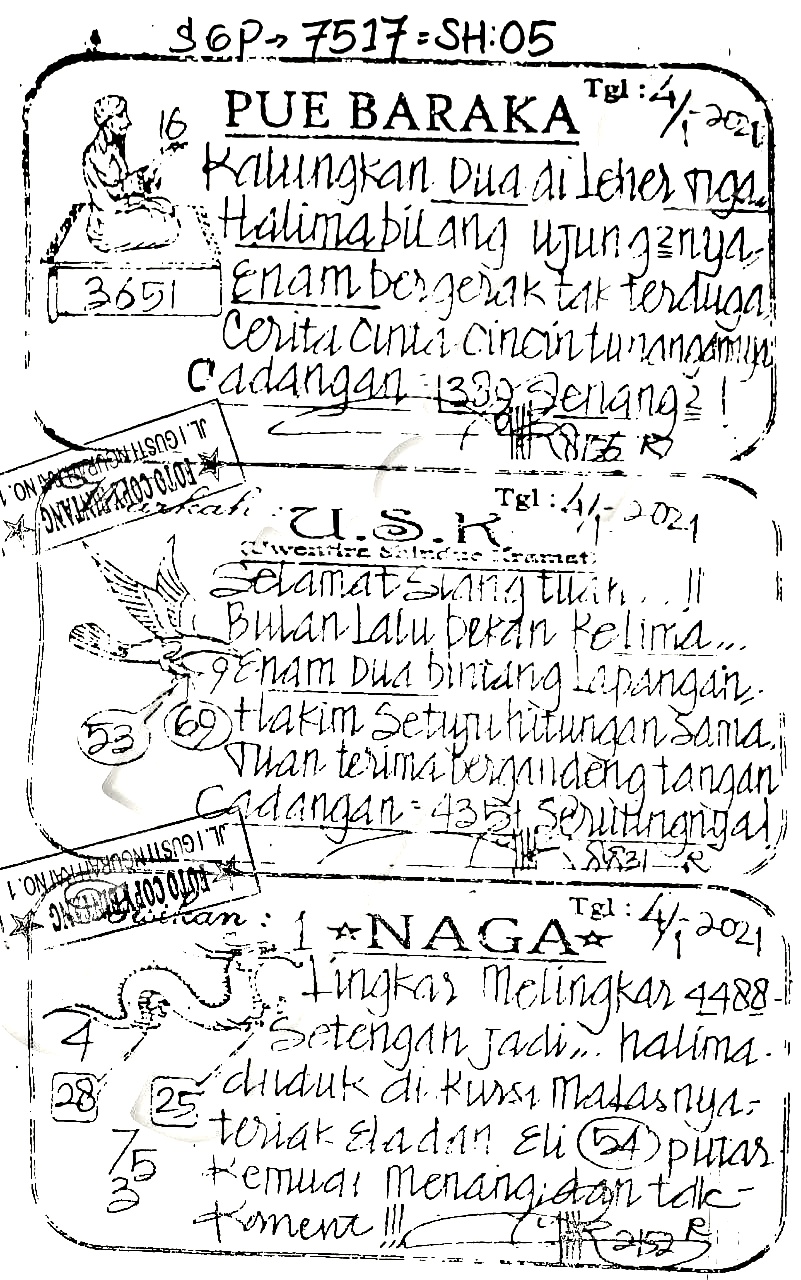 SGP→ 7517 = SH:05
PUE BARAKA
Tgl : 4/1-2021
16
3651
Kalungkan Dua di Leher nga
Halima bilang ujung2nya
Enam bergerak tak terduga
Cerita Cinta Cincin tunangannya
Cadangan = 1339 Senang2 !
FOTO COPY BINTANG
JL. I GUSTI NGURAH RAI NO. 1
Tgl : 4/1-2021
U.S.K
Selamat Siang tuan...!!
Bulan Lalu pekan Kelima...
9 Enam Dua bintang Lapangan,
53 69 Hakim Setuju hitungan Sama,
Tuan terima bergandeng tangan
Cadangan = 4351
8831 R
FOTO COPY BINTANG
JL. I GUSTI NGURAH RAI NO. 1
Tgl : 4/1-2021
: 1 ☆NAGA☆
Lingkar Melingkar 4488-
4 Setengah jadi... halima.
28 25 duduk di Kursi Malasnya,-
teriak Ela dan Eli 54 putar
75 Kemudi Menang dan tak-
3 Koment !!!
2152 R